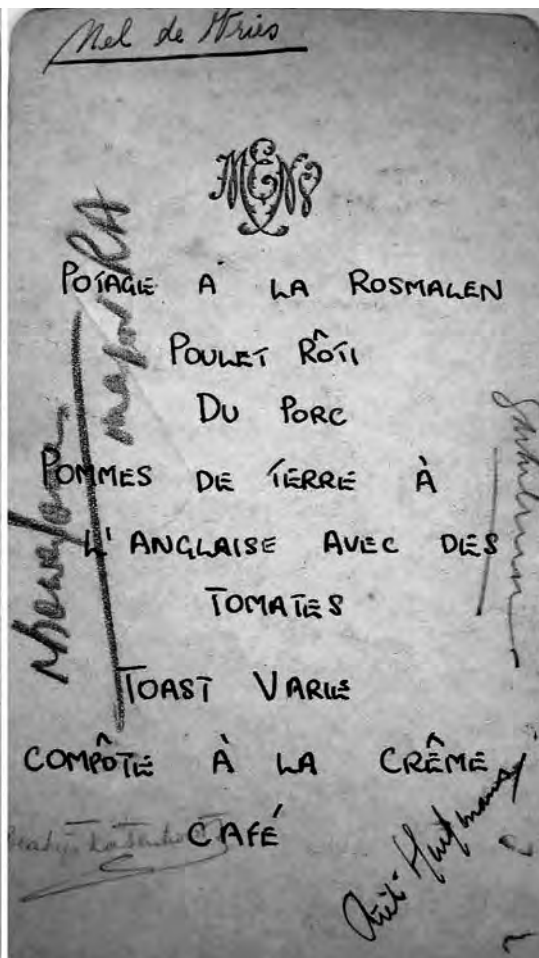 Nel de Vries
MENU
POTAGE A LA ROSMALEN
POULET RÔTI
DU PORC
POMMES DE TERRE À
L'ANGLAISE AVEC DES
TOMATES
TOAST VARIÉ
COMPÔTE À LA CRÊME
CAFÉ
major RA